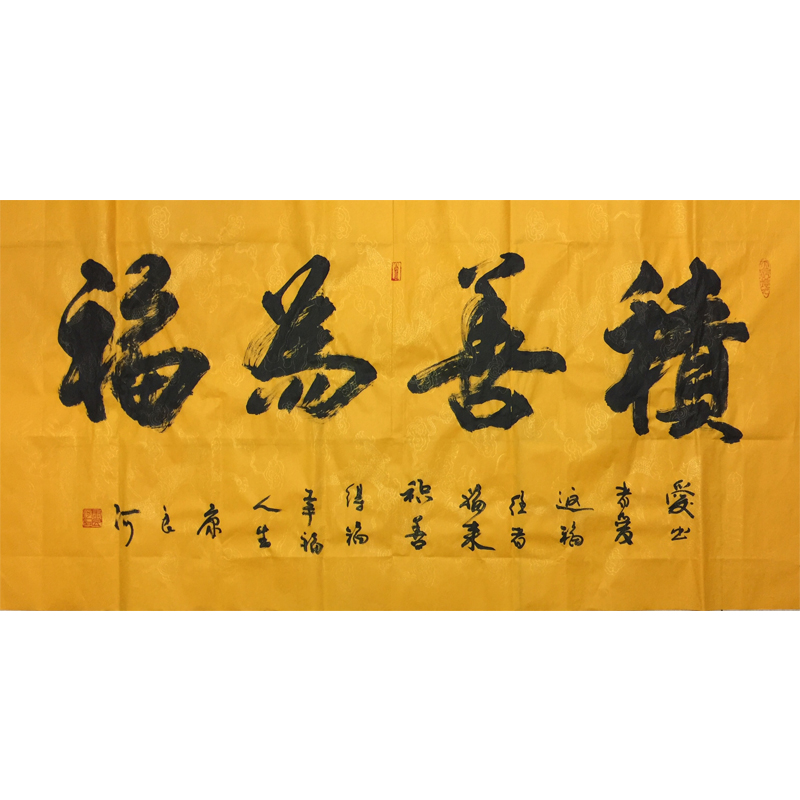 積善為福
愛出者愛返福往者福来积善得福幸福人生康良河